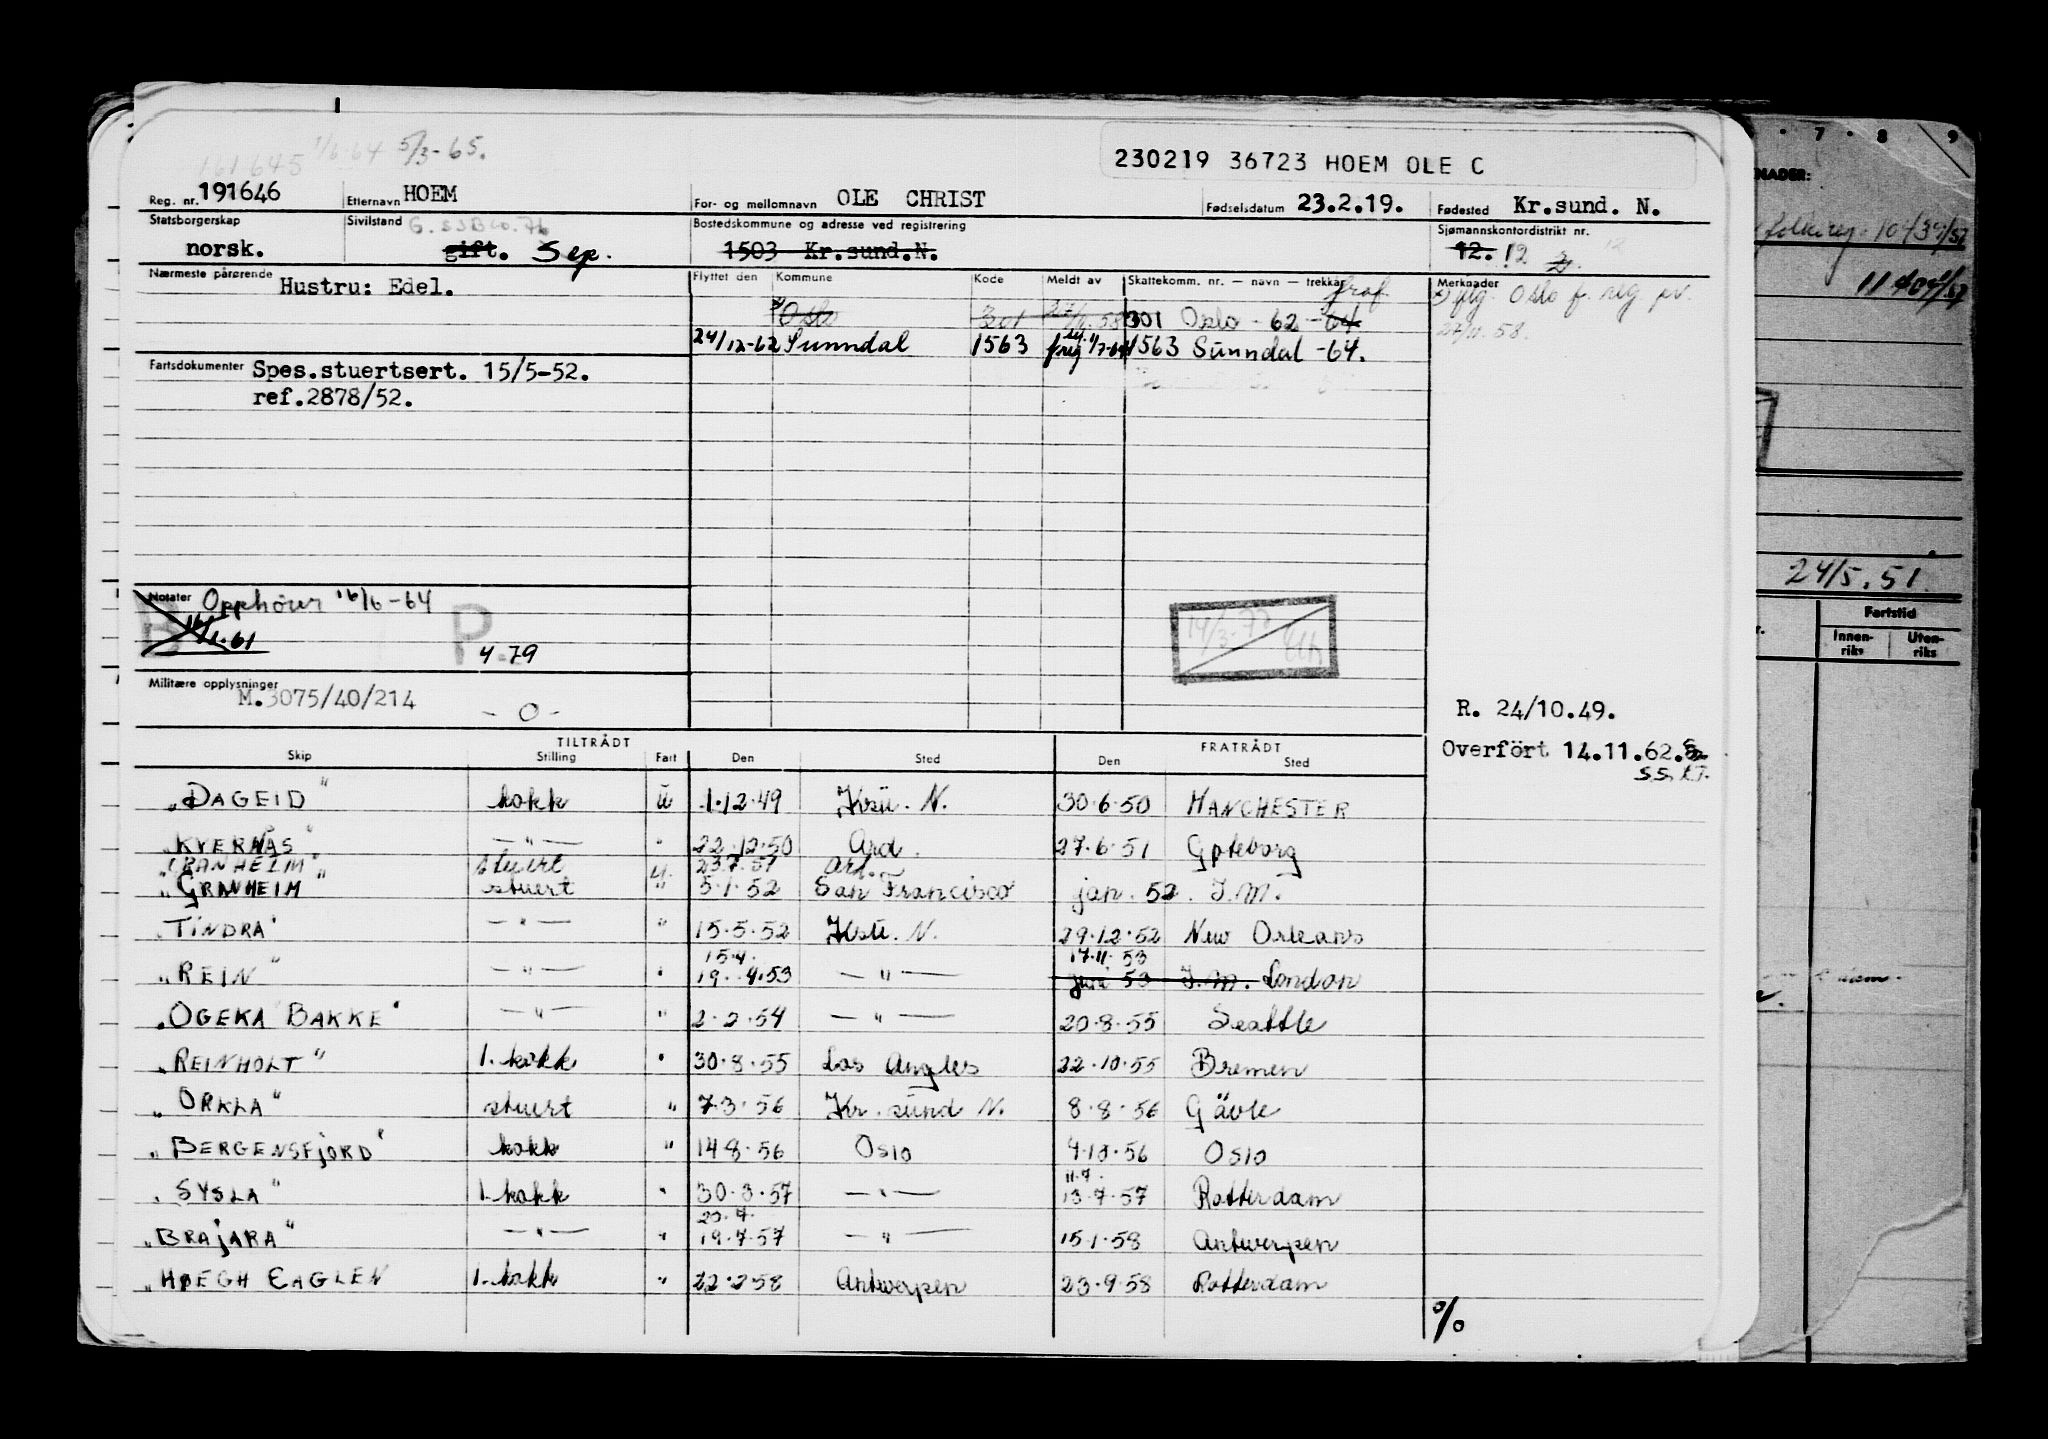 161645 1/6-64 5/3-65.
230219 36723 HOEM OLE C
Reg. nr. 191646 Etternavn HOEM For- og mellomnavn OLE CHRIST Fødselsdatum 23.2.19. Fødested Kr.sund. N.
Statsborgerskap norsk. Sivilstand gift. Sep. Bostedskommune og adresse ved registrering 1503 Kr.sund.N. Sjømannskontordistrikt nr. 12. 12
Nærmeste pårørende Hustru: Edel.
Flyttet den Kommune Kode Meldt av Skattekomm. nr. — navn — trekkår Merknader
Oslo 301 301 Oslo - 62 - 64
24/12-62 Sunndal 1563 1563 Sunndal -64.
Fartsdokumenter Spes.stuertsert. 15/5-52.
ref.2878/52.
Notater Opphörer 16/6-64
B P 4.79
Militære opplysninger M.3075/40/214 - 0 -
R. 24/10.49.
Overfört 14.11.62.
TILTRÅDT FRATRÅDT
Skip Stilling Fart Den Sted Den Sted
"DAGEID" kokk u 1.12.49 Ksu. N. 30.6.50 MANCHESTER
"KVERNÅS" —"— " 22.12.50 Ard. 27.6.51 Gøteborg
"GRANHEIM" stuert u. 23.7.51 Ard.
"GRANHEIM" stuert " 5.1.52 San Francisco jan. 52. I.M.
"TINDRA" —"— " 15.5.52 Ksu. N. 29.12.52 New Orleans
15.4. 17.11.53
"REIN" —"— " 19.4.53 —"— juni 53 I.M. London
"OGEKA BAKKE" —"— " 2.2.54 —"— 20.8.55 Seattle
"REINHOLT" 1. kokk " 30.8.55 Los Angles 22.10.55 Bremen
"ORKLA" stuert " 7.3.56 Kr.sund N. 8.8.56 Gävle
"BERGENSFJORD" kokk " 14.8.56 Oslo 4.10.56 Oslo
11.7.
"SYSLA" 1. kokk " 30.3.57 —"— 13.7.57 Rotterdam
20.7.
"BRAJARA" —"— " 19.7.57 —"— 15.1.58 Antwerpen
"HØEGH EAGLEN 1. kokk " 22.2.58 Antwerpen 23.9.58 Rotterdam
%
7 8 9
24/5.51.
Fartstid
Innen-riks Uten-riks